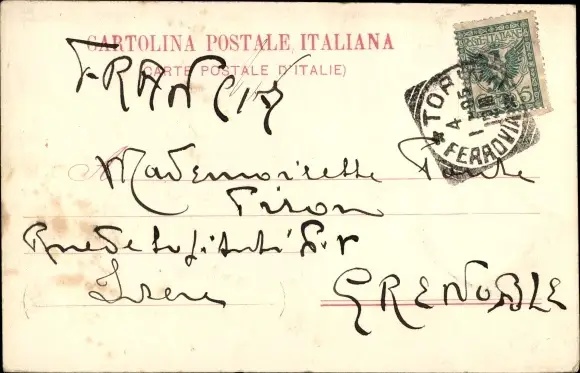 CARTOLINA POSTALE ITALIANA
(CARTE POSTALE D'ITALIE)
FRANCIA
POSTE ITALIANE
5
FERROVIA
Mademoiselle
Pison
Rue de
Isere
GRENOBLE